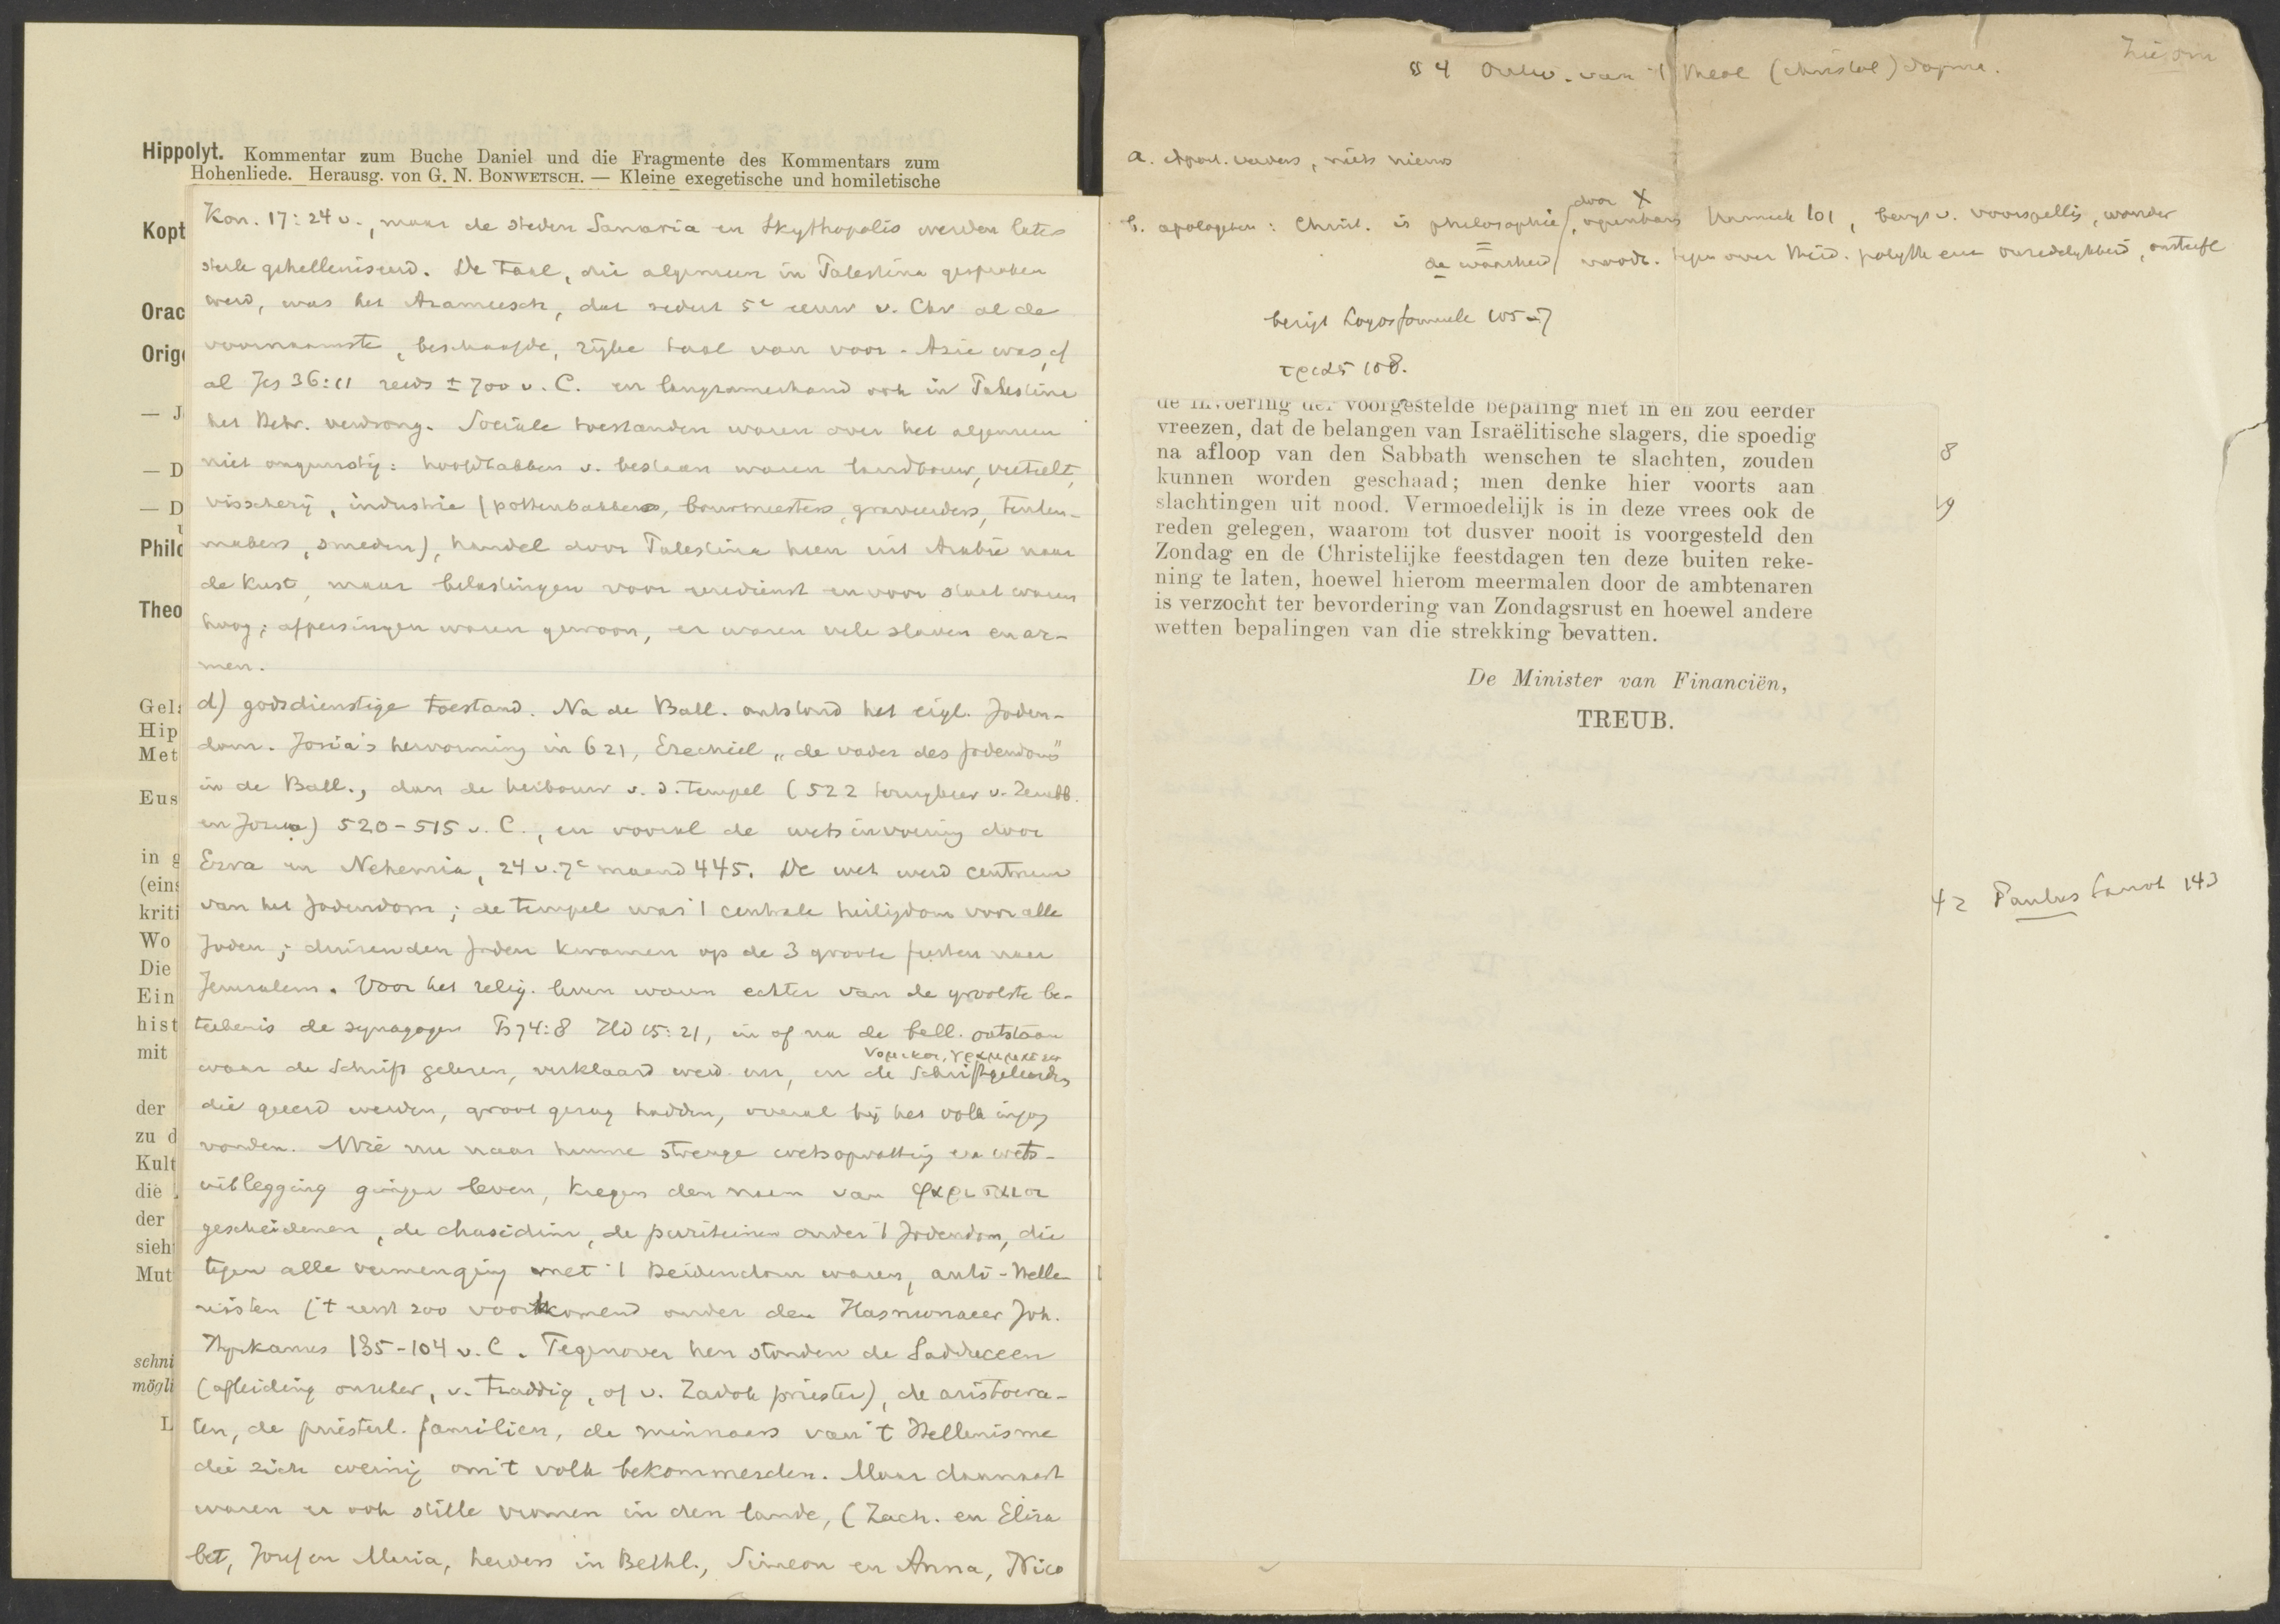 Hippolyt. Kommentar zum Buche Daniel und die Fragmente des Kommentars zum
Hohenliede. Herausg. von G. N. BONWETSCH. — Kleine exegetische und homiletische
Kopt
Orac
Orig
— J
— D
— D
Philo
Theo
Gel
Hip
Met
Eus
in g
(eins
kriti
Wo
Die
Ein
hist
mit
der
zu d
Kult
die
der
sieh
Mut
schni
mögli
L
Kon. 17:24 v., maar de steden Samaria en Skythopolis werden later
sterk gehelleniseerd. De taal, die algemeen in Palestina gesproken
werd, was het Arameesch, dat sedert 5e eeuw v. Chr al de
voornaamste, beschaafde, rijke taal van voor-Azie was, cf
al Jes 36:11 reeds ± 700 v. C. en langzamerhand ook in Palestina
het Hebr. verdrong. Sociale toestanden waren over het algemeen
niet ongunstig: hoofdtakken v. bestaan waren landbouw, veeteelt,
visscherij, industrie (pottenbakkers, bouwmeesters, graveerders, tenten-
makers, smeden), handel door Palestina heen uit Arabië naar
de kust, maar belastingen voor eredienst en voor staat waren
hoog; afpersingen waren gewoon, er waren vele slaven en ar-
men.
d) godsdienstige toestand. Na de Ball. ontstond het eigl. Joden-
dom. Josia's hervorming in 621, Ezechiel „de vader des Jodendoms"
in de Ball., dan de herbouw v. d. tempel (522 terugkeer v. Zerubb.
en Jozua) 520-515 v. C., en vooral de wetsinvoering door
Ezra en Nehemia, 24 v. 7e maand 445. De wet werd centrum
van het Jodendom; de tempel was 't centrale heiligdom voor alle
Joden; duizenden Joden kwamen op de 3 groote feesten naar
Jeruzalem. Voor het relig. leven waren echter van de grootste be-
teekenis de synagogen Ps 74:8 Hd 15:21, in of na de ball. ontstaan
νομικοι, γραμματεις
waar de Schrift gelezen, verklaard werd enz, en de Schriftgeleerden
die geeerd werden, groot gezag hadden, overal bij het volk ingang
vonden. Wie nu naar hunne strenge wetsopvatting en wets-
uitlegging gingen leven, kregen den naam van φαρισαιοι
gescheidenen, de chasidim, de puriteinen onder 't Jodendom, die
tegen alle vermenging met 't Heidendom waren, anti-Helle
nisten ('t eerst zoo voorkomend onder den Hasmonaeer Joh.
Hyrkanus 135-104 v. C. Tegenover hen stonden de Sadduceen
(afleiding onzeker, v. tzaddiq, of v. Zadok priester), de aristocra-
ten, de priesterl. familien, de minnaars van 't Hellenisme
die zich weinig om 't volk bekommerden. Maar daarnaast
waren er ook stille vromen in den lande, (Zach. en Eliza
bet, Jozef en Maria, herders in Bethl., Simeon en Anna, Nico
Zie om
§ 4 Ontw. van 't theol (christol) dogma.
a. Apost. vaders, niets nieuws
door X
b. apologeten: Christ. is philosophie, openbar Harnack 101, bewijs v. voorspellig, wonder
de waarheid noodz. tegen over Heid. polyth een onredelijkheid, onsterfl
bezigt Logosformule 105-7
τριας 108.
de invoering der voorgestelde bepaling niet in en zou eerder
vreezen, dat de belangen van Israëlitische slagers, die spoedig
na afloop van den Sabbath wenschen te slachten, zouden
kunnen worden geschaad; men denke hier voorts aan
slachtingen uit nood. Vermoedelijk is in deze vrees ook de
reden gelegen, waarom tot dusver nooit is voorgesteld den
Zondag en de Christelijke feestdagen ten deze buiten reke-
ning te laten, hoewel hierom meermalen door de ambtenaren
is verzocht ter bevordering van Zondagsrust en hoewel andere
wetten bepalingen van die strekking bevatten.
De Minister van Financiën,
TREUB.
8
9
42 Paulus 143